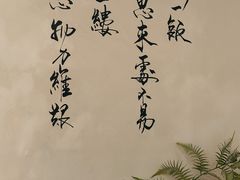 一飯
思來處不易
縷
物力維艱